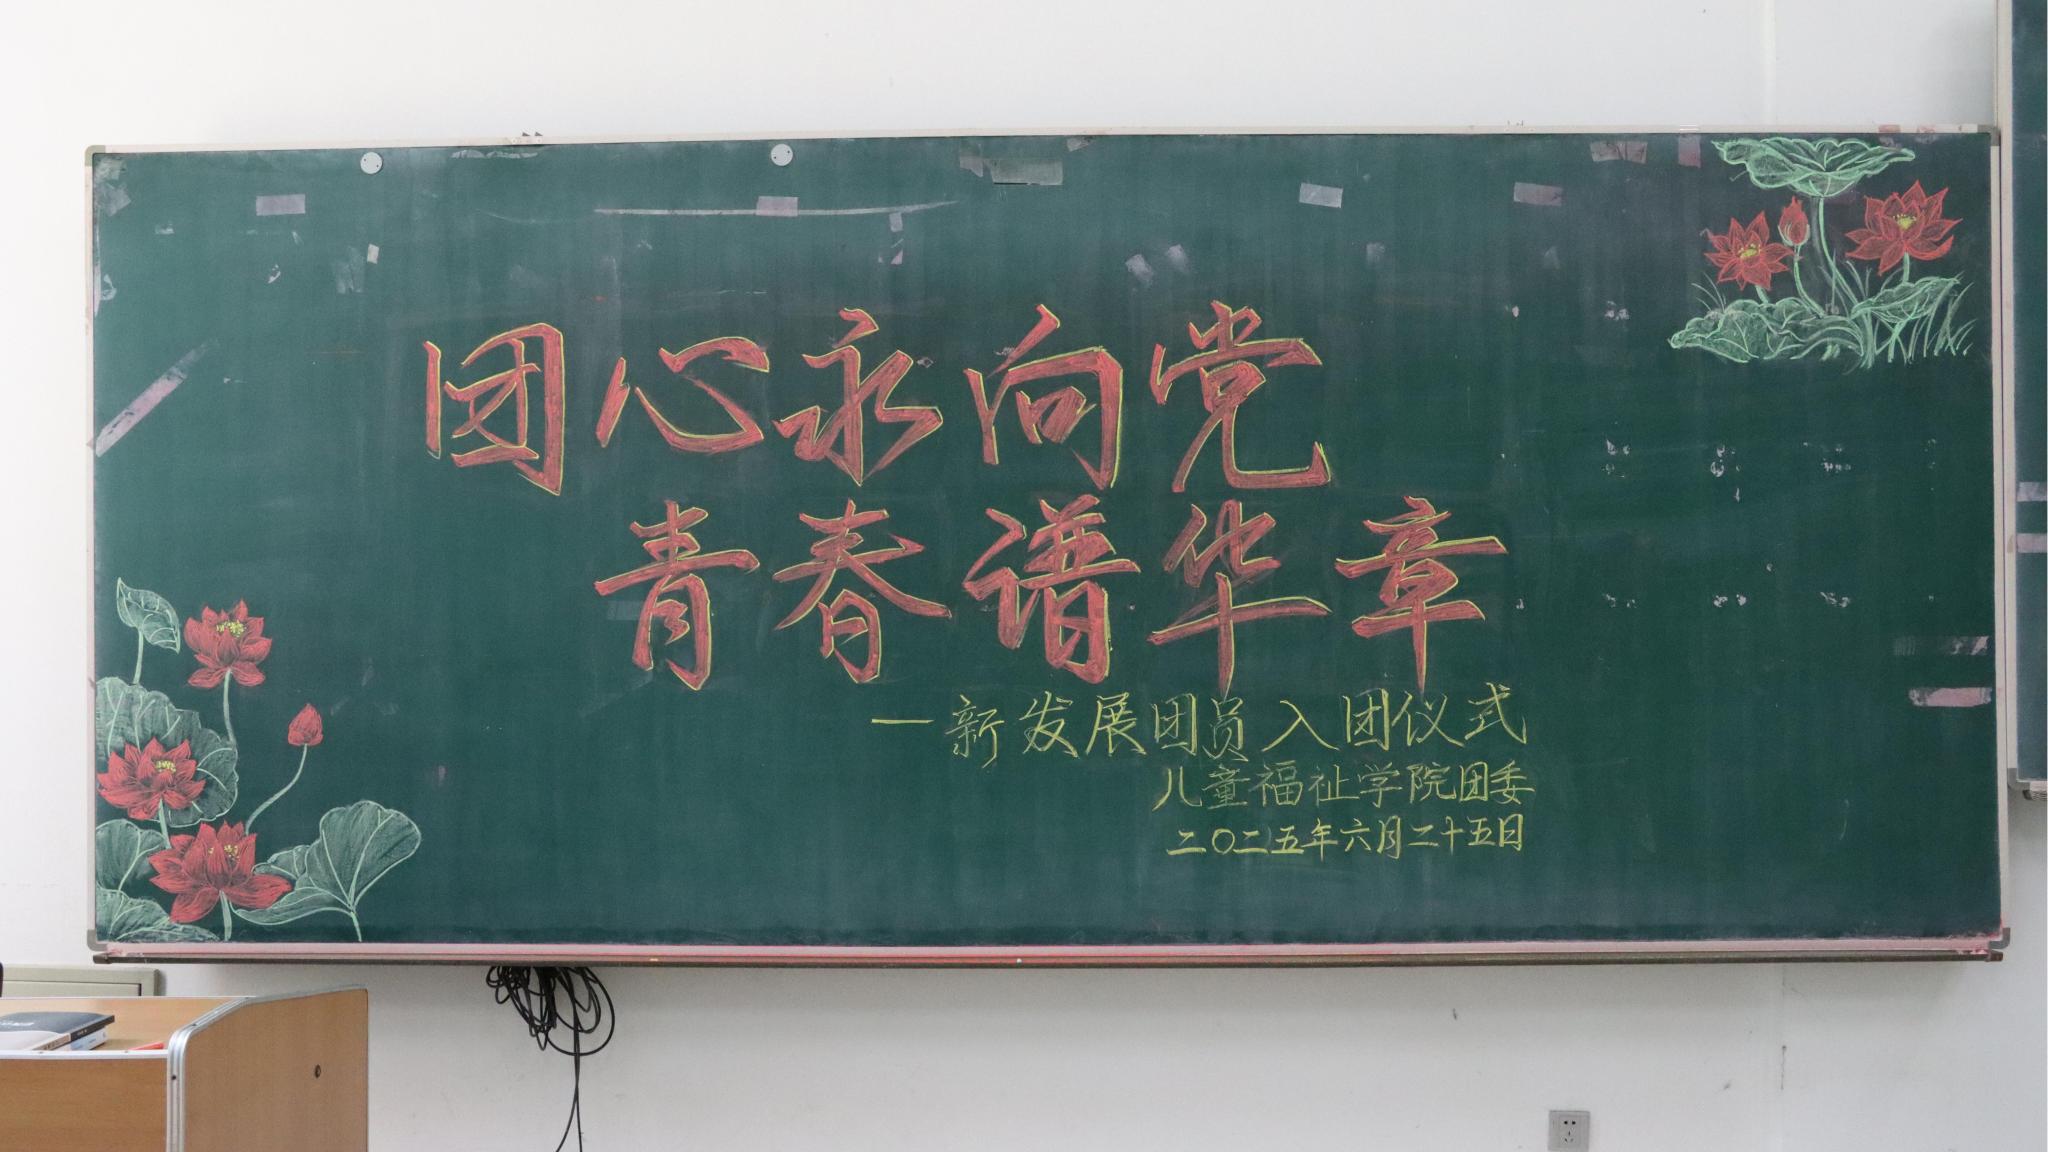 团心永向党
青春谱华章
—新发展团员入团仪式
儿童福祉学院团委
二〇二五年六月二十五日